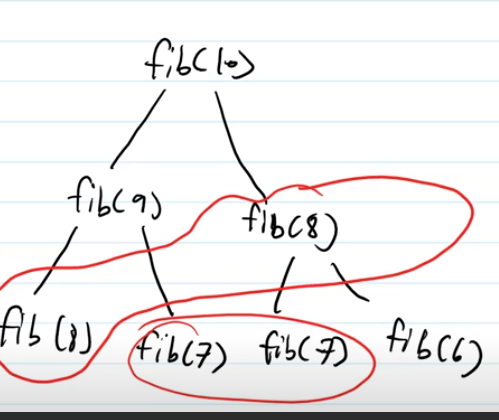 fib(10)
fib(9) fib(8)
fib(8) fib(7) fib(7) fib(6)